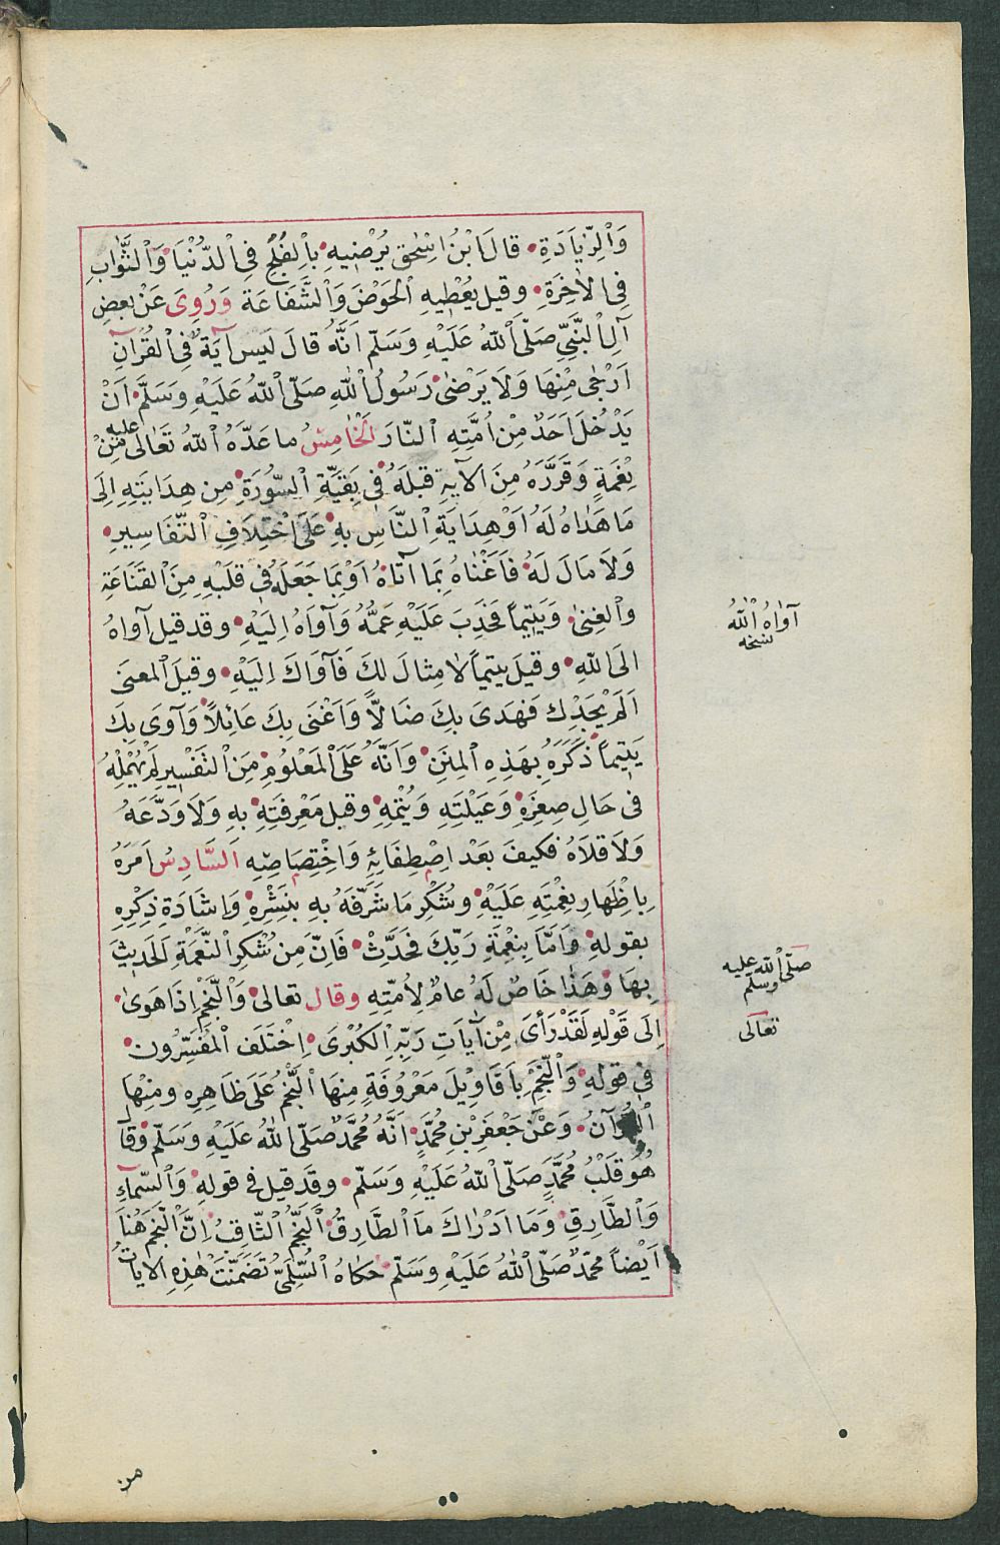 وَالزِّيَادَةِ • قَالَ ابْنُ اِسْحٰق يُرْضٖيهِ • بِالْفُلْجِ فِى الدُّنْيَا • وَالثَّوَابِ
فِى الْاٰخِرَةِ • وقيل يُعْطٖيهِ الْحَوْضَ وَالشَّفَاعَةَ وَرُوِىَ عَنْ بعضِ
آلِ النَّبِىِّ صَلَّى اللّٰهُ عَلَيْهِ وَسَلَّم اَنَّهُ قالَ لَيس آيَةٌ فِى الْقُرْآنِ
اَرْجٰى مِنْهَا وَلَا يَرْضٰى • رَسُولُ اللّٰهِ صَلَّى اللّٰهُ عَلَيْهِ وَسَلَّمَ • اَنْ
يَدْخُلَ اَحَدٌ مِنْ اُمَّتِهِ النَّارَ اَلْخَامِسُ ما عَدَّهُ اللّٰهُ تَعَالى عليه مِنْ
نِعَمِهِ وَقَرَّرَهُ مِنَ الآيۃِ قبلَهُ • فى بَقِيَّةِ السُّورَةِ • مِن هِدَايَتِهِ اِلَى
مَا هَدَاهُ لَهُ اَوْهِدَايَةِ النَّاسِ بهِ • عَلَى اخْتِلَافِ التَّفَاسِيرِ •
وَلَا مَالَ لَهُ • فَاَغْنَاهُ بِمَا آتَاهُ • اَوْ بِمَا جَعَلَهُ فى قلبِهِ مِنَ القَنَاعَۃِ
والغِنىٰ • وَيَتٖيماً فَحَدِبَ عَلَيْهِ عَمُّهُ وَآوَاهُ اِلَيْهِ • وقد قيل آواهُ
الَى اللّٰهِ • وقيلَ يتيماً لا مِثالَ لكَ فَآوَاكَ اِلَيْهِ • وقيلَ المعنَى
اَلَمْ يَجِدْكَ فَهَدَى بِكَ ضَالًّا وَاَغْنَى بِكَ عَائِلاً • وَآوَى بِكَ
يَتٖيماً • ذَكَّرَهُ بِهَذِهِ المِنَنِ • وَاَنَّهُ عَلَى الْمَعْلُومِ • مِنَ التَّفْسِيرِ لَمْ يُهْمِلْهُ
فى حَالِ صِغَرِهِ • وَعَيْلَتِهِ وَيُتْمِهِ • وقبلَ مَعْرِفَتِهِ • بِهِ وَلَا وَدَّعَهُ
وَلَا قَلَاهُ فَكيفَ بَعْدَ اصْطِفَائِهِ وَاخْتِصَاصِهِ اَلسَّادِسُ اَمَرَهُ
بِاِظْهَارِ نِعْمَتِهِ عَلَيْهِ • وشُكْرِ مَا شَرَّفَهُ بِهِ بِنَشْرِهِ • وَاِشَادَةِ ذِكْرِهِ
بقولهِ • وَاَمَّا بِنِعْمَةِ رَبِّكَ فَحَدِّثْ • فَاِنَّ مِن شُكْرِ النِّعْمَةِ الْحَديثَ
بِهَا • وَهَذَا خَاصٌ لَهُ عامٌ لِاُمَّتِهِ وقال تعالى • وَالنَّجْمِ اِذَا هَوىٰ •
اِلَى قَوْلِهِ لَقَدْ رَأى مِنْ آيَاتِ رَبِّهِ الْكُبْرَى • اِخْتَلَفَ الْمُفَسِّرُون •
فى قولِهِ • وَالنَّجْمِ بِاَقَاوِيلَ مَعْرُوفَةٍ مِنهَا النَّجْمُ عَلَى ظَاهِرِه ومِنْهَا
الْقُرْآنُ • وَعَنْ جَعْفَرِ بْنِ مُحَمَّدٍ • اَنَّهُ مُحَمَّدٌ صَلَّى اللّٰهُ عَلَيْهِ وَسَلَّم • وَقَا
هُوَ قَلْبُ مُحَمَّدٍ صَلَّى اللّٰهُ عَلَيْهِ وَسَلَّم • وقَد قيل فى قولهِ • وَالسَّمآءِ
وَالطَّارِقِ • وَمَا اَدْرَاكَ مَا الطَّارِقُ • النَّجْمُ الثَّاقِبُ • اِنَّ النَّجْمَ هُنَا
اَيْضاً مُحَمَّدٌ صَلَّى اللّٰهُ عَلَيْهِ وَسَلَّم • حَكَاهُ السُّلَمِىُّ • تَضَمَّنَتْ هٰذِهِ الآياتُ
آوَاهُ اللّٰهُ
نسخه
صَلَّى اللّٰه عليه
وسلّم
تعالى
من